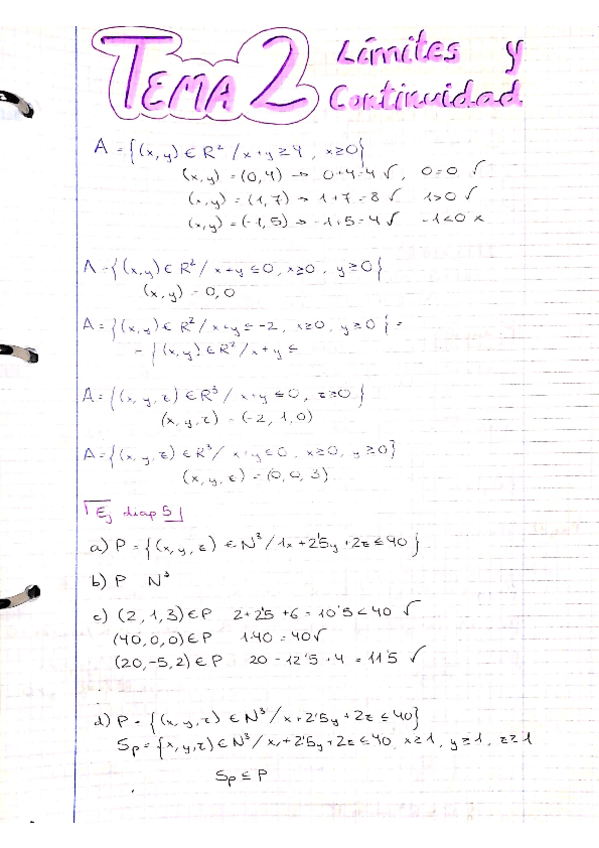 TEMA 2 Límites y Continuidad
A = {(x,y) ∈ R² / x+y ≥ 4, x ≥ 0}
(x,y) = (0,4) → 0+4=4 ✓, 0=0 ✓
(x,y) = (1,7) → 1+7=8 ✓ 1>0 ✓
(x,y) = (-1,5) → -1+5=4 ✓ -1<0 x
A = {(x,y) ∈ R² / x+y ≤ 0, x≥0, y≥0}
(x,y) = 0,0
A = {(x,y) ∈ R² / x+y ≤ -2, x≥0, y≥0} =
= {(x,y) ∈ R² / x+y ≤
A = {(x,y,z) ∈ R³ / x+y ≤ 0, z≥0}
(x,y,z) = (-2,1,0)
A = {(x,y,z) ∈ R³ / x+y ≤ 0, x≥0, y≥0}
(x,y,z) = (0,0,3)
Ej diap 5
a) P = {(x,y,z) ∈ N³ / 1x + 2'5y + 2z ≤ 40}
b) P N³
c) (2,1,3) ∈ P 2+2'5+6 = 10'5 < 40 ✓
(40,0,0) ∈ P 1·40 = 40 ✓
(20,-5,2) ∈ P 20 - 12'5 + 4 = 11'5 ✓
d) P = {(x,y,z) ∈ N³ / x + 2'5y + 2z ≤ 40}
Sp = {x,y,z) ∈ N³ / x + 2'5y + 2z ≤ 40, x≥1, y≥1, z≥1
Sp ≤ P